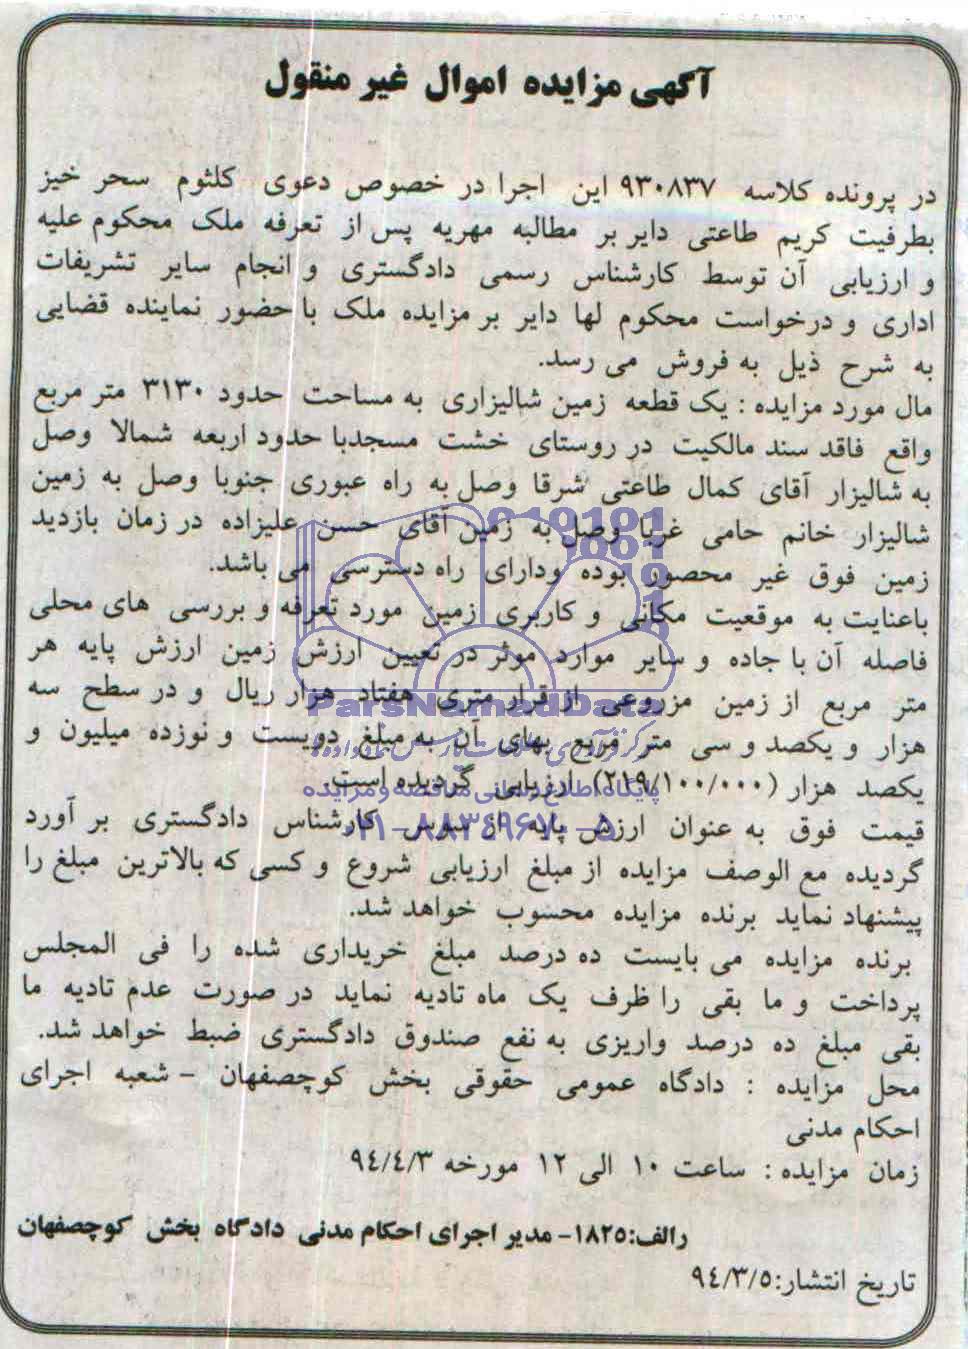 آگهی مزایده اموال غیر منقول
در پرونده کلاسه ۹۳۰۸۳۷ این اجرا در خصوص دعوی کلثوم سحر خیز
بطرفیت کریم طاعتی دایر بر مطالبه مهریه پس از تعرفه ملک محکوم علیه
و ارزیابی آن توسط کارشناس رسمی دادگستری و انجام سایر تشریفات
اداری و درخواست محکوم لها دایر بر مزایده ملک با حضور نماینده قضایی
به شرح ذیل به فروش می رسد.
مال مورد مزایده : یک قطعه زمین شالیزاری به مساحت حدود ۳۱۳۰ متر مربع
واقع فاقد سند مالکیت در روستای خشت مسجدبا حدود اربعه شمالا وصل
به شالیزار آقای کمال طاعتی شرقا وصل به راه عبوری جنوبا وصل به زمین
شالیزار خانم حامی غربا وصل به زمین آقای حسن علیزاده در زمان بازدید
زمین فوق غیر محصور بوده ودارای راه دسترسی می باشد.
باعنایت به موقعیت مکانی و کاربری زمین مورد تعرفه و بررسی های محلی
فاصله آن با جاده و سایر موارد موثر در تعیین ارزش زمین ارزش پایه هر
متر مربع از زمین مزروعی از قرار متری هفتاد هزار ریال و در سطح سه
ParsNamadData
هزار و یکصد و سی متر مربع بهای آن به مبلغ دویست و نوزده میلیون و
یکصد هزار (۲۱۹/۱۰۰/۰۰۰) ارزیابی گردیده است.
پایگاه اطلاع رسانی مناقصه و مزایده
قیمت فوق به عنوان ارزش پایه از سوی کارشناس دادگستری بر آورد
۰۲۱-۸۸۳۴۹۶۷۰-۵
گردیده مع الوصف مزایده از مبلغ ارزیابی شروع و کسی که بالاترین مبلغ را
پیشنهاد نماید برنده مزایده محسوب خواهد شد.
برنده مزایده می بایست ده درصد مبلغ خریداری شده را فی المجلس
پرداخت و ما بقی را ظرف یک ماه تادیه نماید در صورت عدم تادیه ما
بقی مبلغ ده درصد واریزی به نفع صندوق دادگستری ضبط خواهد شد.
محل مزایده : دادگاه عمومی حقوقی بخش کوچصفهان - شعبه اجرای
احکام مدنی
زمان مزایده : ساعت ۱۰ الی ۱۲ مورخه ۹٤/٤/۳
رالف:۱۸۲۵- مدیر اجرای احکام مدنی دادگاه بخش کوچصفهان
تاریخ انتشار:۹٤/۳/۵